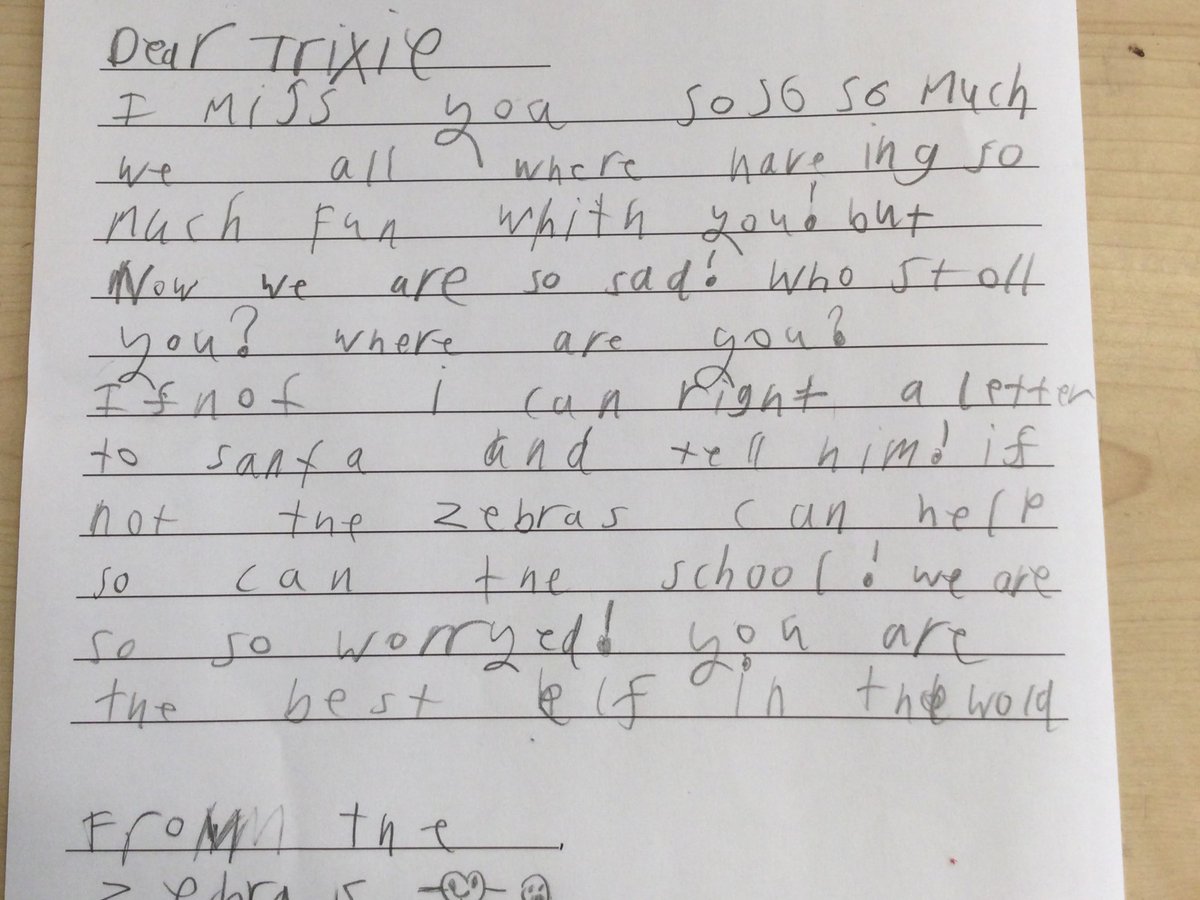 Dear Trixie
I Miss you so so so Much
we all where haveing so
much Fun whith you! but
Now we are so sad! who stoll
you? where are you?
If not i can right a letter
to santa and tell him! if
not the zebras can help
so can the school! we are
so so worryed! you are
the best elf in the wold
From the
zebras